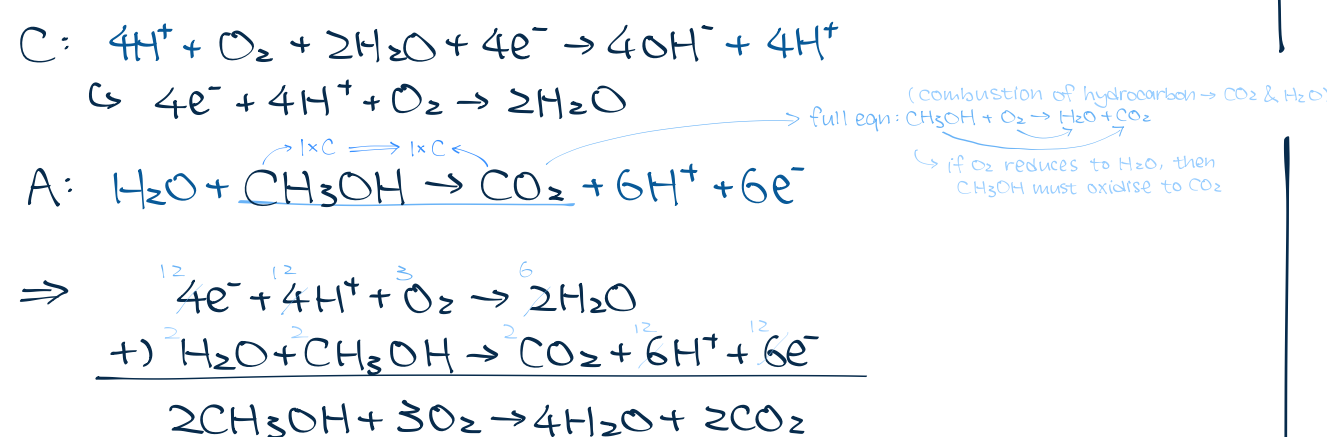 C: 4H⁺ + O₂ + 2H₂O + 4e⁻ → 4OH⁻ + 4H⁺
↪ 4e⁻ + 4H⁺ + O₂ → 2H₂O
(combustion of hydrocarbon → CO₂ & H₂O)
full eqn: CH₃OH + O₂ → H₂O + CO₂
↪ if O₂ reduces to H₂O, then
CH₃OH must oxidise to CO₂
1×C ⟹ 1×C
A: H₂O + CH₃OH → CO₂ + 6H⁺ + 6e⁻
12 12 3 6
⇒ 4e⁻ + 4H⁺ + O₂ → 2H₂O
2 2 2 12 12
+) H₂O + CH₃OH → CO₂ + 6H⁺ + 6e⁻
2CH₃OH + 3O₂ → 4H₂O + 2CO₂